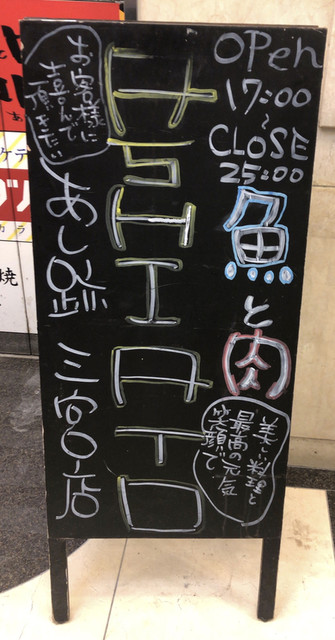 OPen
17:00
~
CLOSE
25:00
魚と肉
美しい料理と
最高の元気
笑顔で
ASHIATO
お客様に
喜んで
頂きたい
あし跡 三宮店
焼